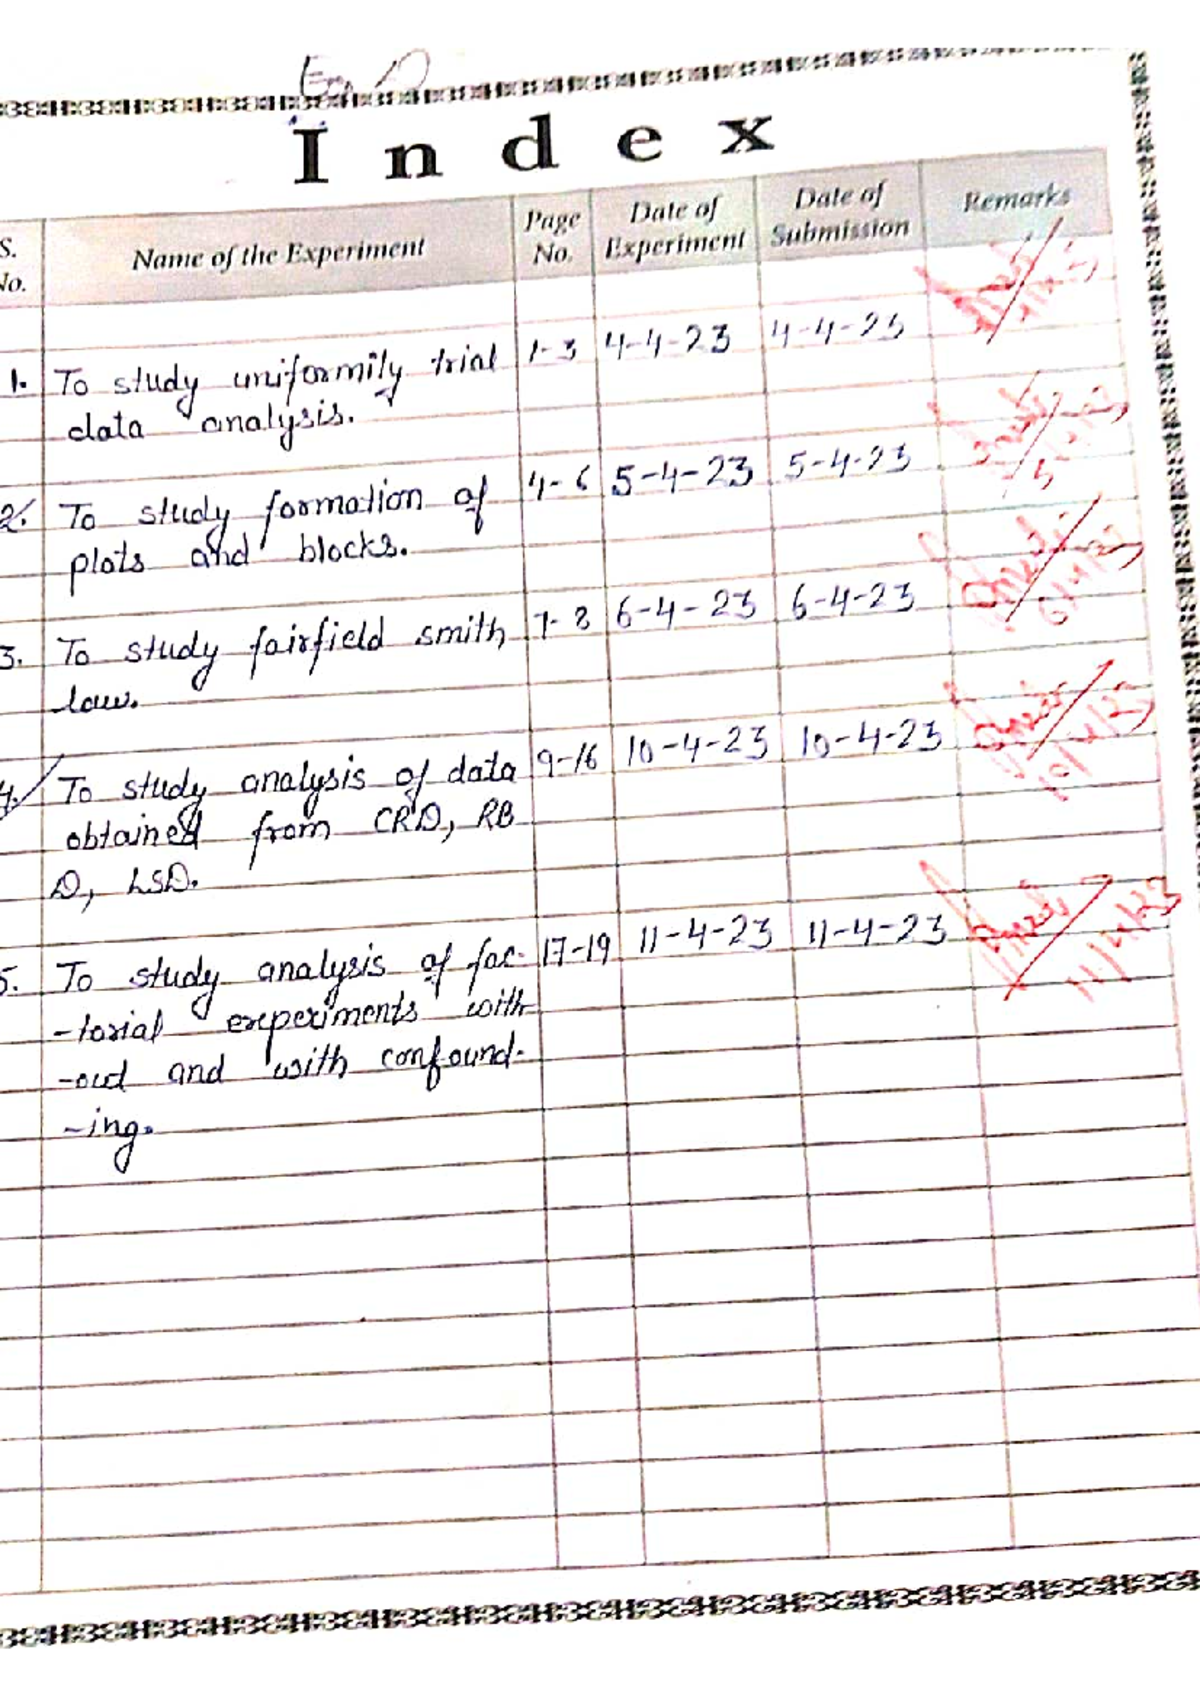 Exp. D
Index
S. No. Name of the Experiment Page No. Date of Experiment Date of Submission Remarks
1. To study uniformity trial 1-3 4-4-23 4-4-23
data analysis.
2. To study formation of 4-6 5-4-23 5-4-23
plots and blocks.
3. To study fairfield smith 7-8 6-4-23 6-4-23
law.
4. To study analysis of data 9-16 10-4-23 10-4-23
obtained from CRD, RB
D, LSD. 10/4/23
5. To study analysis of fac- 17-19 11-4-23 11-4-23
-torial experiments with 11/4/23
-out and with confound-
-ing.